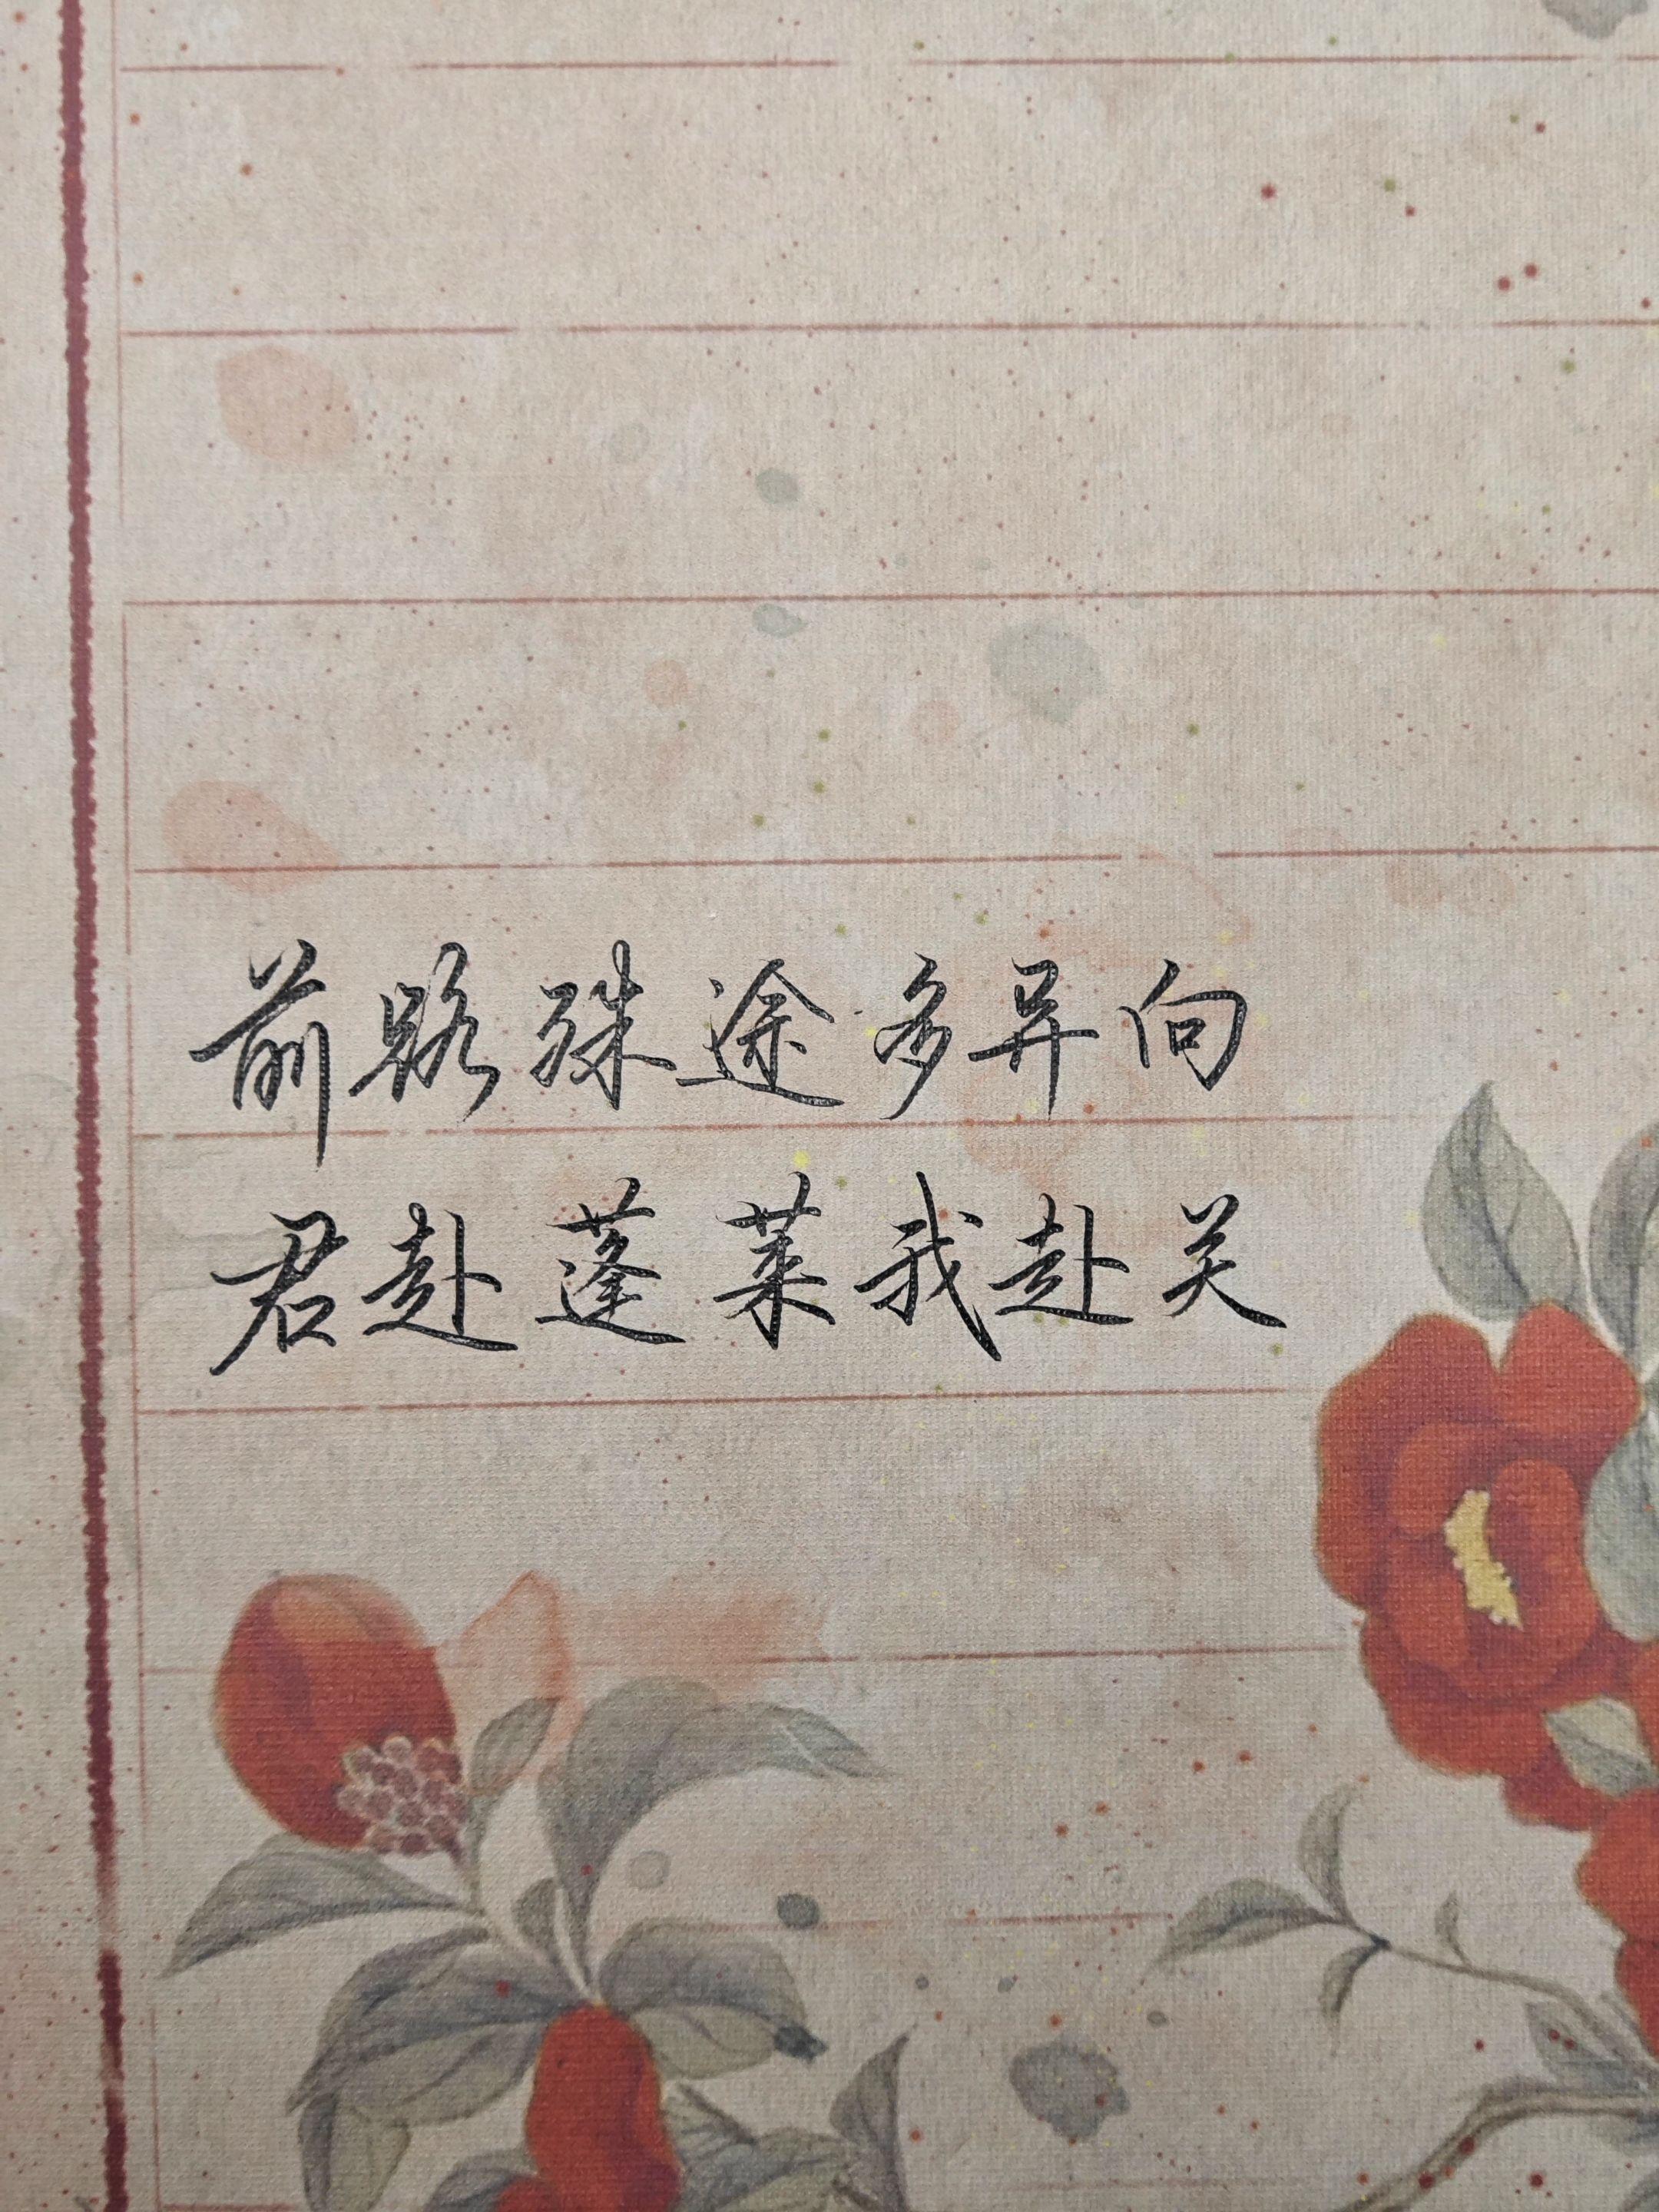 前路殊途多异向
君赴蓬莱我赴关